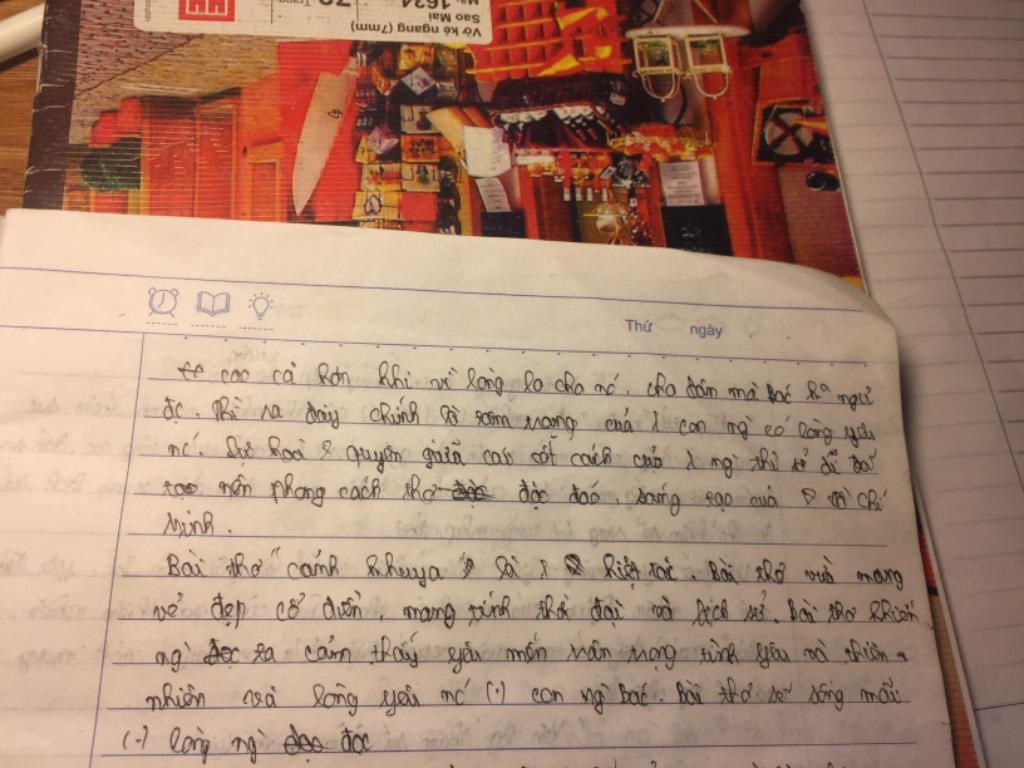 Vở kẻ ngang (7mm)
Sao Mai
1634
Thứ ngày
cao cả hơn khi vì lo cho nc. cho dân mà Bác ngủ
đc. Thì ra đây chính là của 1 con ng có lòng yêu
nc. Sự hoà quyện giữa cốt cách của 1 ng thi sĩ đã
tạo nên phong cách thơ độc đáo, sáng tạo của Chí
Minh.
Bài thơ "cảnh khuya" là 1 kiệt tác. Bài thơ vừa mang
vẻ đẹp cổ điển, mang tính thời đại và lịch sử. Bài thơ khiến
ng ta cảm thấy yêu mến trân trọng tình yêu và thiên
nhiên và lòng yêu nc (.) con ng Bác. Bài thơ sẽ sống mãi
(.) lòng ng đọc